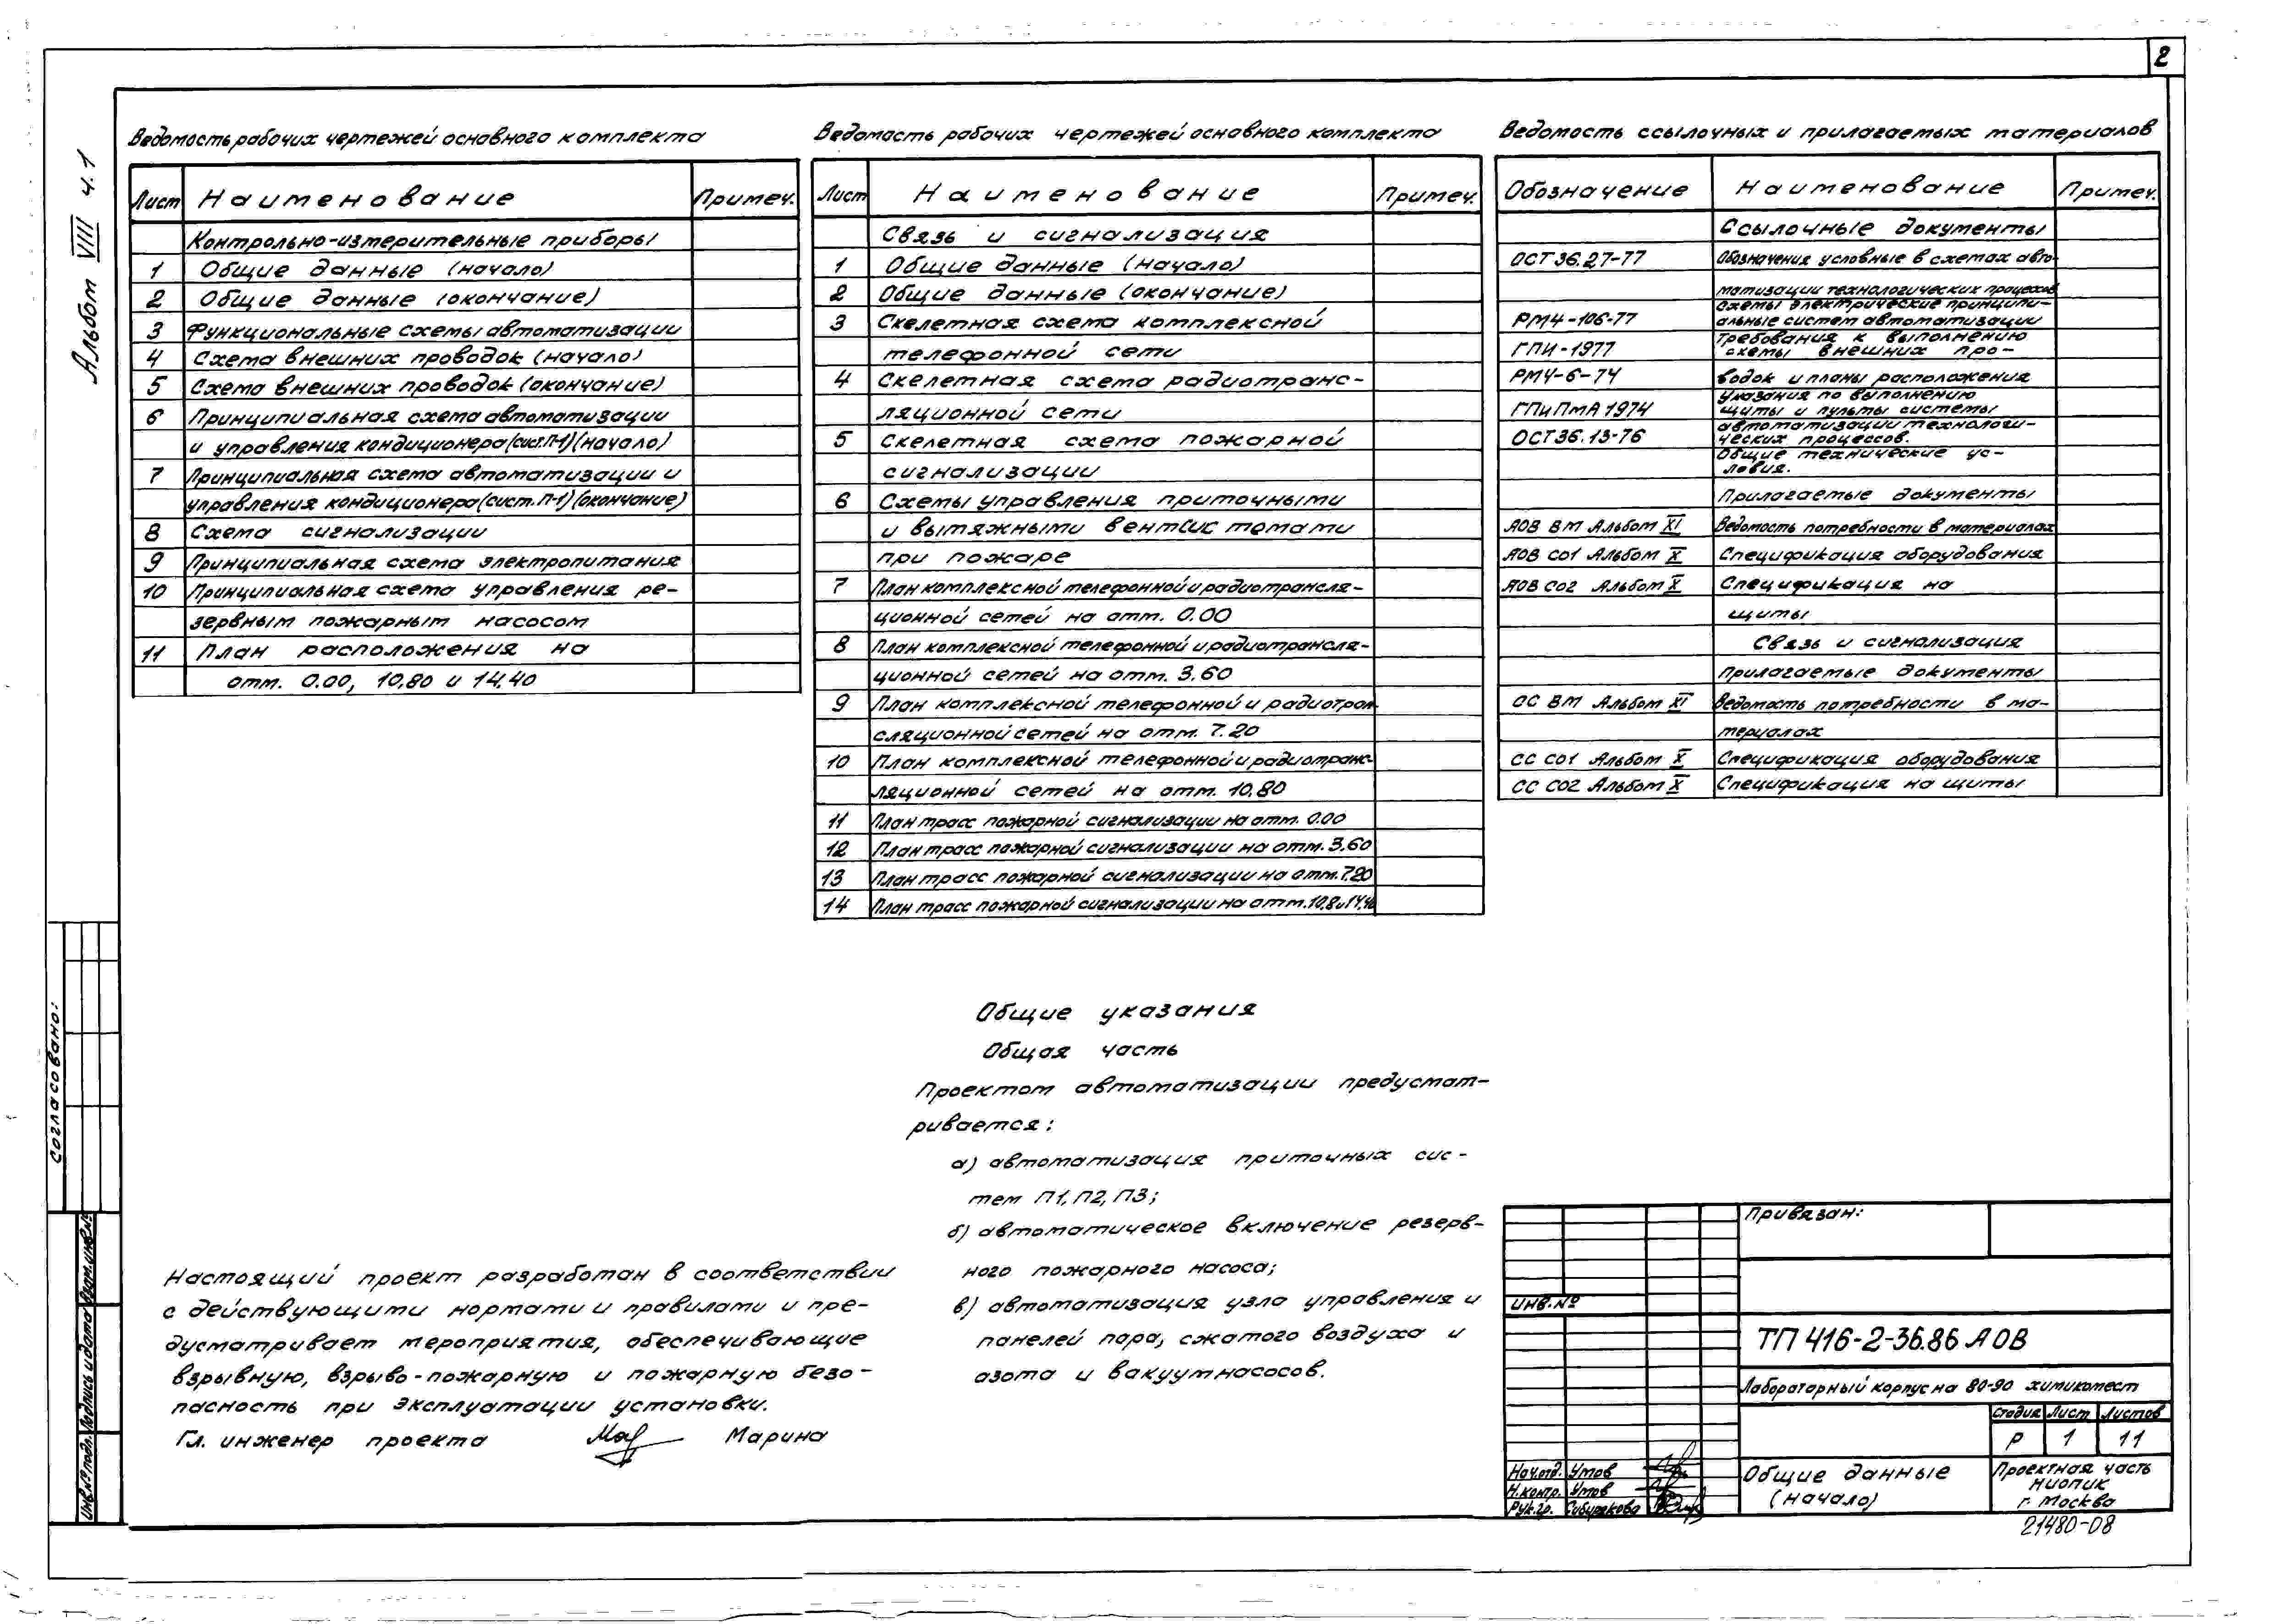 2
Альбом VIII ч.1
Ведомость рабочих чертежей основного комплекта
Лист Наименование Примеч.
Контрольно-измерительные приборы
1 Общие данные (начало)
2 Общие данные (окончание)
3 Функциональные схемы автоматизации
4 Схема внешних проводок (начало)
5 Схема внешних проводок (окончание)
6 Принципиальная схема автоматизации
и управления кондиционера (сист.П-1) (начало)
7 Принципиальная схема автоматизации и
управления кондиционера (сист.П-1) (окончание)
8 Схема сигнализации
9 Принципиальная схема электропитания
10 Принципиальная схема управления ре-
зервным пожарным насосом
11 План расположения на
отм. 0.00, 10,80 и 14,40
Ведомасть рабочих чертежей основного комплекта
Лист Наименование Примеч.
Связь и сигнализация
1 Общие данные (начало)
2 Общие данные (окончание)
3 Скелетная схема комплексной
телефонной сети
4 Скелетная схема радиотранс-
ляционной сети
5 Скелетная схема пожарной
сигнализации
6 Схемы управления приточными
и вытяжными вентсистемами
при пожаре
7 План комплексной телефонной и радиотрансля-
ционной сетей на отм. 0.00
8 План комплексной телефонной и радиотрансля-
ционной сетей на отм. 3.60
9 План комплексной телефонной и радиотран-
сляционной сетей на отм. 7.20
10 План комплексной телефонной и радиотранс-
ляционной сетей на отм. 10,80
11 План трасс пожарной сигнализации на отм. 0.00
12 План трасс пожарной сигнализации на отм. 3,60
13 План трасс пожарной сигнализации на отм. 7.20
14 План трасс пожарной сигнализации на отм. 10,8 и 14,40
Ведомость ссылочных и прилагаемых материалов
Обозначение Наименование Примеч.
Ссылочные документы
ОСТ 36.27-77 Обозначения условные в схемах авто-
матизации технологических процессов
Схемы электрические принципи-
РМ4-106-77 альные систем автоматизации
Требования к выполнению
ГПИ-1977 схемы внешних про-
РМ4-6-74 водок и планы расположения
Указания по выполнению
ГПиПмА 1974 щиты и пульты системы
автоматизации технологи-
ОСТ 36.13-76 ческих процессов.
Общие технические ус-
ловия.
Прилагаемые документы
АОВ ВМ Альбом XI Ведомость потребности в материалах
АОВ СО1 Альбом X Спецификация оборудования
АОВ СО2 Альбом X Спецификация на
щиты
Связь и сигнализация
Прилагаемые документы
СС ВМ Альбом XI Ведомость потребности в ма-
териалах
СС СО1 Альбом X Спецификация оборудования
СС СО2 Альбом X Спецификация на щиты
Общие указания
Общая часть
Проектом автоматизации предусмат-
ривается:
а) автоматизация приточных сис-
тем П1, П2, П3;
б) автоматическое включение резерв-
ного пожарного насоса;
в) автоматизация узла управления и
панелей пара, сжатого воздуха и
азота и вакуумнасосов.
Настоящий проект разработан в соответствии
с действующими нормами и правилами и пре-
дусматривает мероприятия, обеспечивающие
взрывную, взрыво-пожарную и пожарную безо-
пасность при эксплуатации установки.
Гл. инженер проекта Марина
Согласовано:
Инв.№подл. Подпись и дата Взам.инв.№
Привязан:
Инв.№
ТП 416-2-36.86 АОВ
Лабораторный корпус на 80-90 химикомест
Стадия Лист Листов
Р 1 11
Нач.отд. Умов
Н.контр. Умов
Рук.гр. Сибирякова
Общие данные
(начало)
Проектная часть
НИОПИК
г. Москва
21480-08